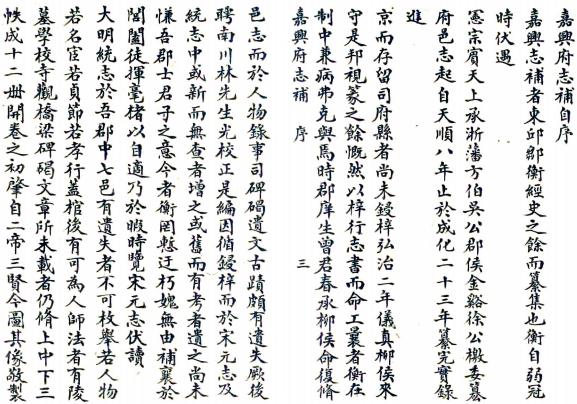 嘉興府志補自序
嘉興志補者東邱鄒衡經史之餘而纂集也衡自弱冠
時伏遇
憲宗賓天上承浙藩方伯吳公郡侯金谿徐公檄委纂
府邑志起自天順八年止於成化二十三年纂完實錄
進
京而存留司府縣者尚未鋟梓弘治二年儀真柳侯來
守是邦視篆之餘慨然以梓行志書而命工曩者衡在
制中兼病弗克與焉時郡庠生曾君春承柳侯命復脩
嘉興府志補 序 三
邑志而於人物錄事司碑碣遺文古蹟頗有遺失厥後
聘南川林先生光校正是編因循鋟梓而於宋元志及
統志中或新而無查者增之或舊而有考者遺之尚未
慊吾郡士君子之意今者衡罔懸迂朽媿無由補襄於
閭閻徒揮毫楮以自適乃於暇時覽宋元志伏讀
大明統志於吾郡中七邑有遺失者不可枚舉若人物
若名宦若貞節若孝行蓋棺後有可為人師法者有陵
墓學校寺觀橋梁碑碣文章所未載者仍脩上中下三
帙成十二册開卷之初肇自二帝三賢今圖其像敬製